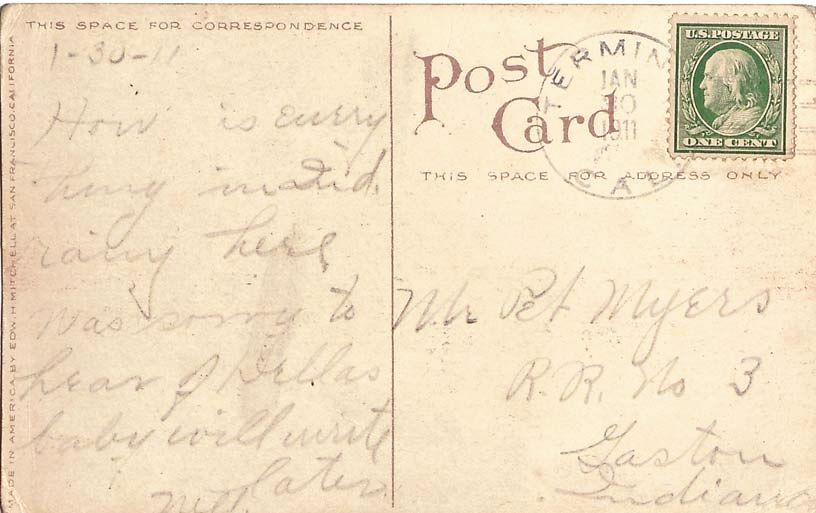 THIS SPACE FOR CORRESPONDENCE
1-30-11
How is every
thing in Ind.
rainy here
was sorry to
hear of Dellas
baby will write
later
MADE IN AMERICA BY EDW. H. MITCHELL AT SAN FRANCISCO, CALIFORNIA
Post
Card
TERMIN
JAN
30
1911
CAL
U.S. POSTAGE
ONE CENT
THIS SPACE FOR ADDRESS ONLY
Mr Pet Myers
R.R. No 3
Gaston
Indiana